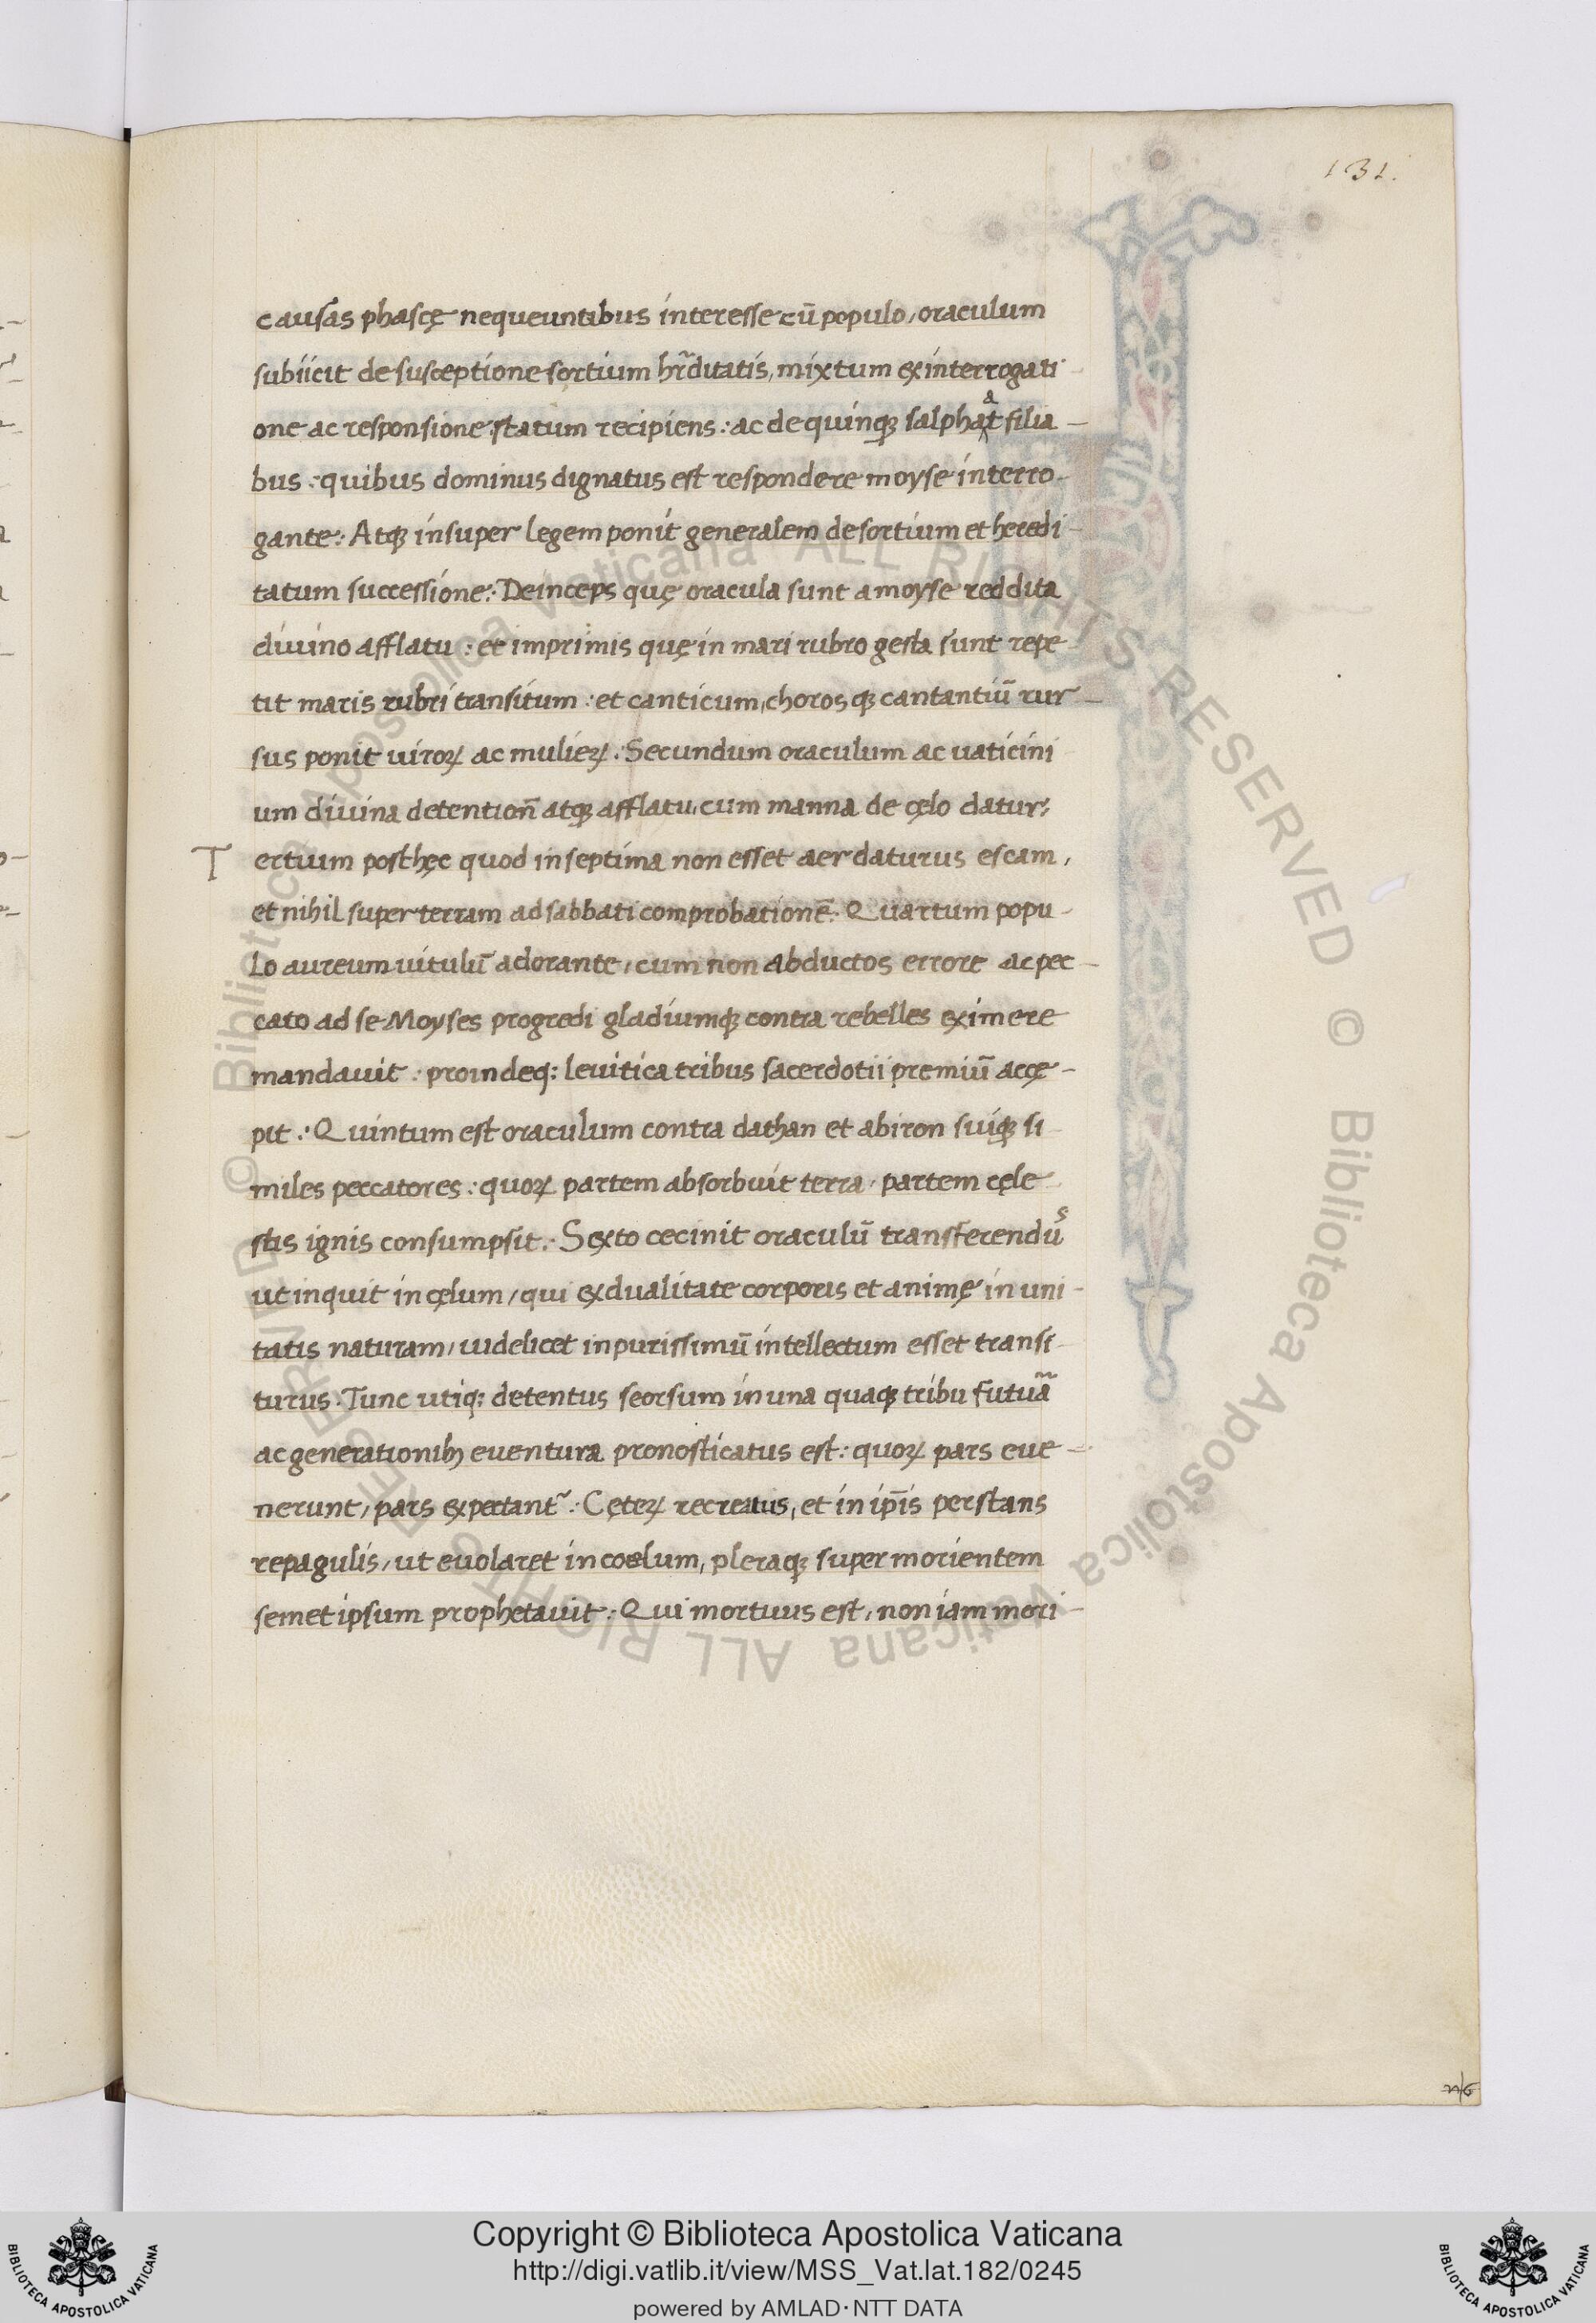 131.
causas phascę nequeuntibus interesse cū populo, oraculum
subiicit de susceptione sortium hr̄ditatis, mixtum ex interrogati
one ac responsione statum recipiens: ac de quinqꝫ salphaat filia-
bus: quibus dominus dignatus est respondere moyse interro-
gante: Atqꝫ insuper legem ponit generalem de sortium et heredi-
tatum successione: Deinceps quę oracula sunt a moyse reddita
divino afflatu: et imprimis quę in mari rubro gesta sunt repe-
tit maris rubri transitum: et canticum, chorosqꝫ cantantiū rur-
sus ponit uiroꝝ ac mulieꝝ: Secundum oraculum ac uaticini
um divina detention̄ atqꝫ afflatu, cum manna de cęlo datur:
Tertium posthęc quod in septima non esset aer daturus escam,
et nihil super terram ad sabbati comprobationē. Quartum popu-
lo aureum uitulū adorante, cum non abductos errore ac pec-
cato ad se Moyses progredi gladiumqꝫ contra rebelles eximere
mandauit: proindeqꝫ leuitica tribus sacerdotii premiū accę-
pit: Quintum est oraculum contra dathan et abiron suiqꝫ si
miles peccatores: quoꝝ partem absorbuit terra, partem cęle
stis ignis consumpsit: Sexto cecinit oraculū transferendus
ut inquit in cęlum, qui ex dualitate corporis et animę in uni-
tatis naturam, uidelicet in purissimū intellectum esset transi-
turus. Tunc utiqꝫ detentus seorsum in una quaqꝫ tribu futuā
ac generationibꝫ euentura pronosticatus est: quoꝝ pars eue-
nerunt, pars expectant᷑: Cęteꝝ recreatus, et in ip̄is perstans
repagulis, ut euolaret in coelum, pleraqꝫ super morientem
semet ipsum prophetauit: Qui mortuus est, non iam mori-
© Biblioteca Apostolica Vaticana ALL RIGHTS RESERVED © Biblioteca Apostolica Vaticana ALL RIGHTS RESERVED
Copyright © Biblioteca Apostolica Vaticana
http://digi.vatlib.it/view/MSS_Vat.lat.182/0245
powered by AMLAD·NTT DATA
BIBLIOTECA APOSTOLICA VATICANA
BIBLIOTECA APOSTOLICA VATICANA